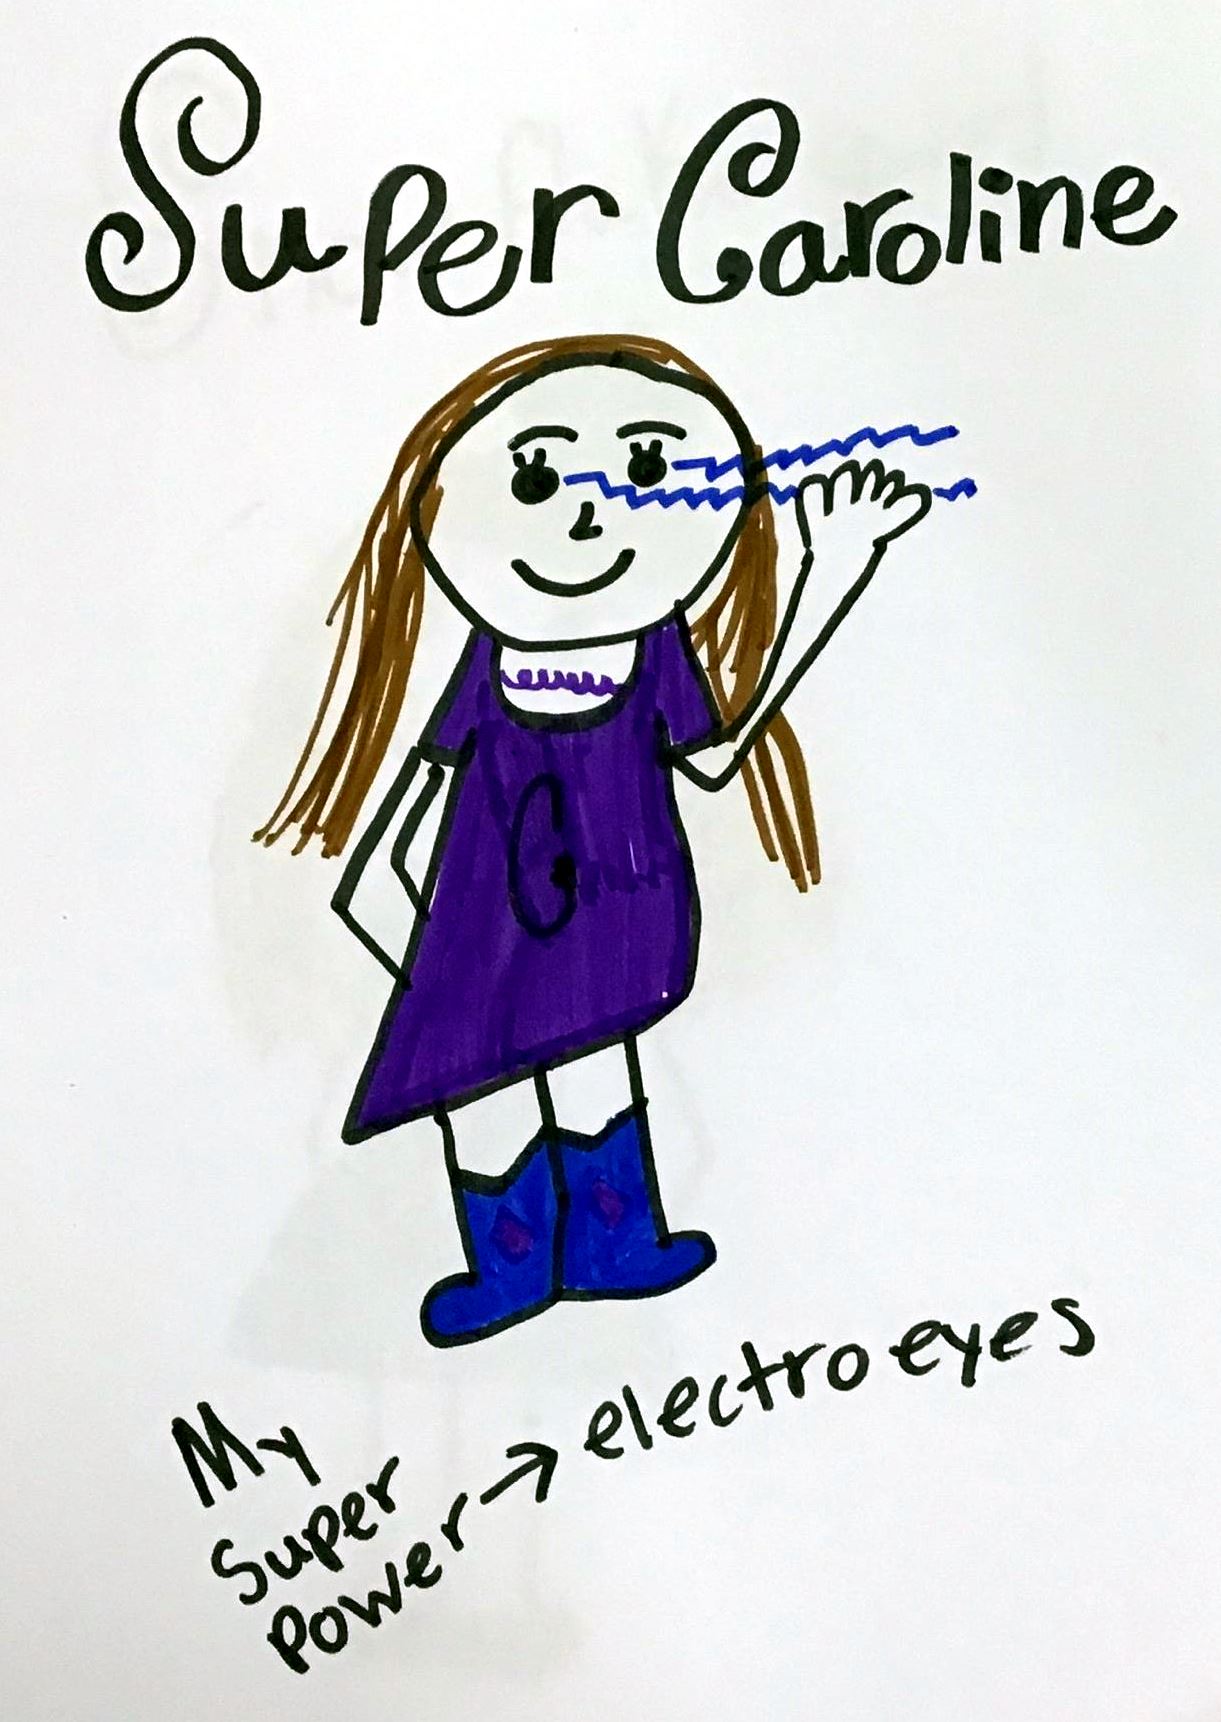 Super Caroline
C
My
Super
power → electro eyes